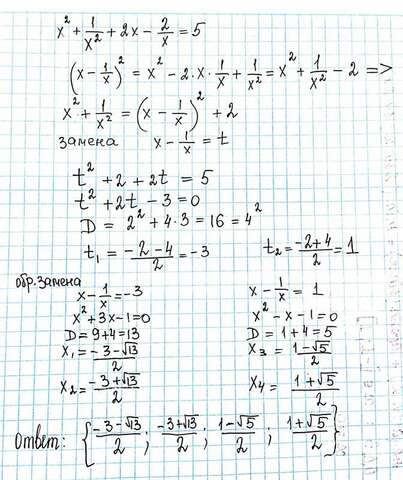 x² + 1/x² + 2x − 2/x = 5
(x − 1/x)² = x² − 2·x·1/x + 1/x² = x² + 1/x² − 2 =>
x² + 1/x² = (x − 1/x)² + 2
замена x − 1/x = t
t² + 2 + 2t = 5
t² + 2t − 3 = 0
D = 2² + 4·3 = 16 = 4²
t₁ = (−2−4)/2 = −3
t₂ = (−2+4)/2 = 1
обр. замена
x − 1/x = −3
x² + 3x − 1 = 0
D = 9+4 = 13
x₁ = (−3−√13)/2
x₂ = (−3+√13)/2
x − 1/x = 1
x² − x − 1 = 0
D = 1+4 = 5
x₃ = (1−√5)/2
x₄ = (1+√5)/2
Ответ: {(−3−√13)/2; (−3+√13)/2; (1−√5)/2; (1+√5)/2}